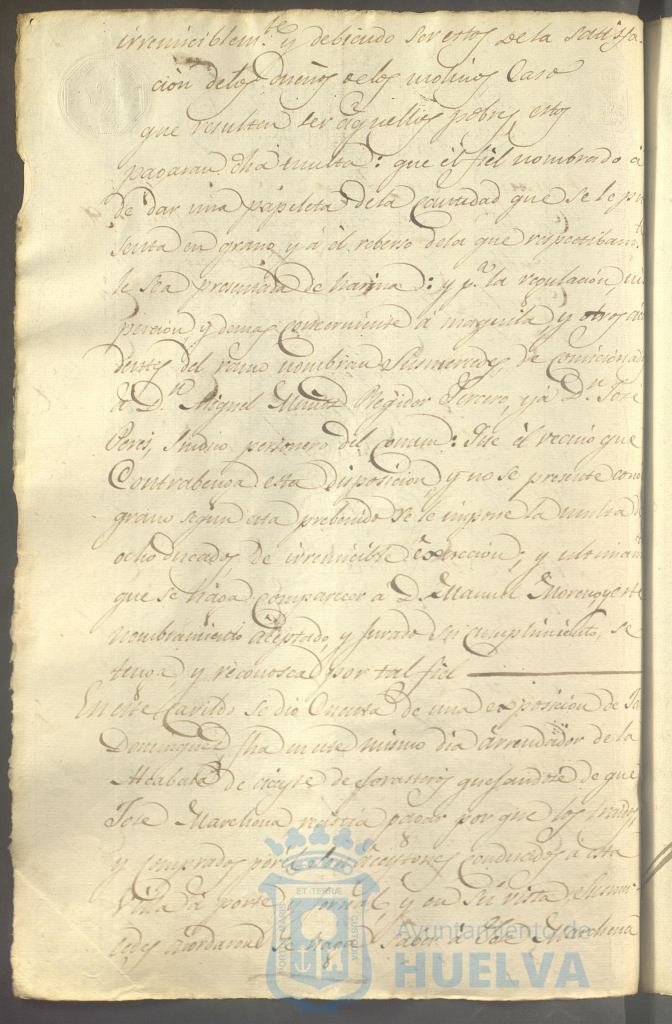 irremiciblem.te y debiendo ser estos de la satisfa
cion delos Dueños delos molinos Caso
que resulten ser aquellos pobres estos
pagaran dha multa: que el fiel nombrado á
de dar una papeleta dela Cantidad que se le pre
senta en grano y á el reberso dela que respectibam.te
le sea presentada de harina: y p.a la regulacion, in
peccion y demas Concerniente á maquila y otros
dentes del ramo nombran Sus mercedes de Comicionado
á D.n Miguel Regidor Tercero, y á D.n Jose
Peres, Sindico personero del Comun: Que el vecino que
Contrabenga esta disposicion y no se presente con el
grano segun esta prebenido se le impone la multa d
ocho ducados de irremicible exaccion; y ultimam.te
que se haga comparecer a D. Manuel Moreno, y este
nombramiento aceptado, y Jurado su cumplimiento, se
tenga y reconosca por tal fiel
En este Cavildo se dio Cuenta de una exposicion de
Dominguez fha en este mismo dia arrendador de la
Alcabala de aceyte de forasteros quejandose de que
Jose Marchena resistia pagar por que los traidos,
y comprados por el eran aceytones conducidos a esta
Villa á porte y jornal y en su vista, sus mer
cedes acordaron se haga saber á Jose Marchena
ET TERRÆ
PORTUS MARIS
CUSTODIA
Ayuntamiento de
HUELVA